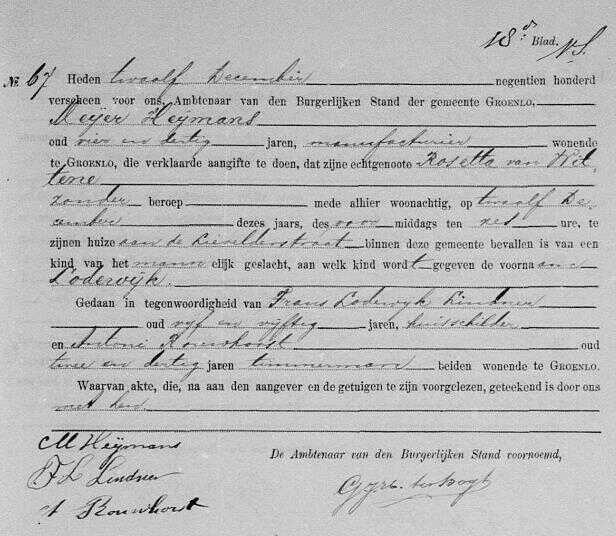 18de Blad.
№ 67 Heden twaalf December negentien honderd
verscheen voor ons, Ambtenaar van den Burgerlijken Stand der gemeente GROENLO,
Meijer Heijmans
oud vier en dertig jaren, manufacturier wonende
te GROENLO, die verklaarde aangifte te doen, dat zijne echtgenoote Rosetta van
zonder beroep mede alhier woonachtig, op twaalf De-
cember dezes jaars, des voor middags ten zes ure, te
zijnen huize aan de Lievelderstraat binnen deze gemeente bevallen is van een
kind van het mann elijk geslacht, aan welk kind wordt gegeven de voorna am
Lodewijk.
Gedaan in tegenwoordigheid van Frans Lodewijk Lindner
oud vijf en vijftig jaren, huisschilder
en Antoni oud
twee en dertig jaren timmerman beiden wonende te GROENLO.
Waarvan akte, die, na aan den aangever en de getuigen te zijn voorgelezen, geteekend is door ons
met hen.
M Heijmans
F L Lindner
De Ambtenaar van den Burgerlijken Stand voornoemd,